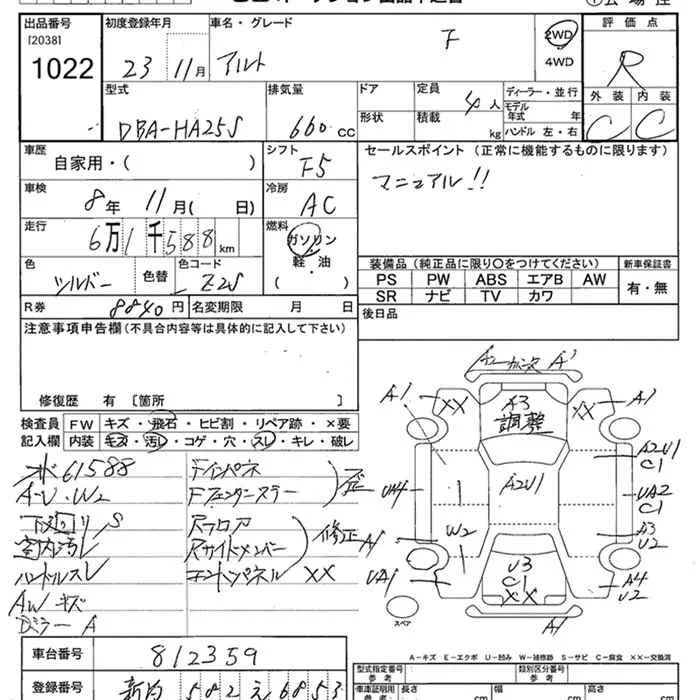 出品番号 初度登録年月 車名・グレード 2WD 評価点
[2038] 1022 23 11月 アルト F 4WD R
型式 排気量 ドア 定員 ディーラー・並行 外装 内装
DBA-HA25S 660cc 形状 積載 4人 kg モデル年式 年 ハンドル 左・右 C C
車歴 シフト セールスポイント (正常に機能するものに限ります)
自家用・( ) F5 マニュアル!!
車検 冷房
8年 11月( 日) AC
走行 燃料
6万1千588km ガソリン・軽・油 ( )
色 色替 色コード 装備品 (純正品に限り○をつけてください) 新車保証書
シルバー Z2S PS PW ABS エアB AW 有・無
SR ナビ TV カワ
R券 8840円 名変期限 月 日 後日品
注意事項申告欄 (不具合内容等は具体的に記入して下さい)
修復歴 有 [箇所 ]
検査員記入欄 FW キズ・飛石・ヒビ割・リペア跡・×要
内装 キズ・汚レ・コゲ・穴・スレ・キレ・破レ
61588 Fインパネ
A-U・W2 Fフェンダーステー 歪
下回りS Rフロア
室内汚レ Rサイドメンバー 修正
ハンドルスレ エンドパネル XX
AWキズ
Dミラー A
A1 XX A3 調整 XX A1
A2U1 C1
A2U1
UA2 C1
W2 A3 U2
A1
UA1 U3 C1 XX A4 U2
スペア A1
A-キズ E-エクボ U-凹み W-補修跡 S-サビ C-腐食 XX-交換済
車台番号 812359
型式指定番号 参考 類別区分番号 参考
登録番号 582 え 6853
車庫証明用 参考 長さ cm cm cm